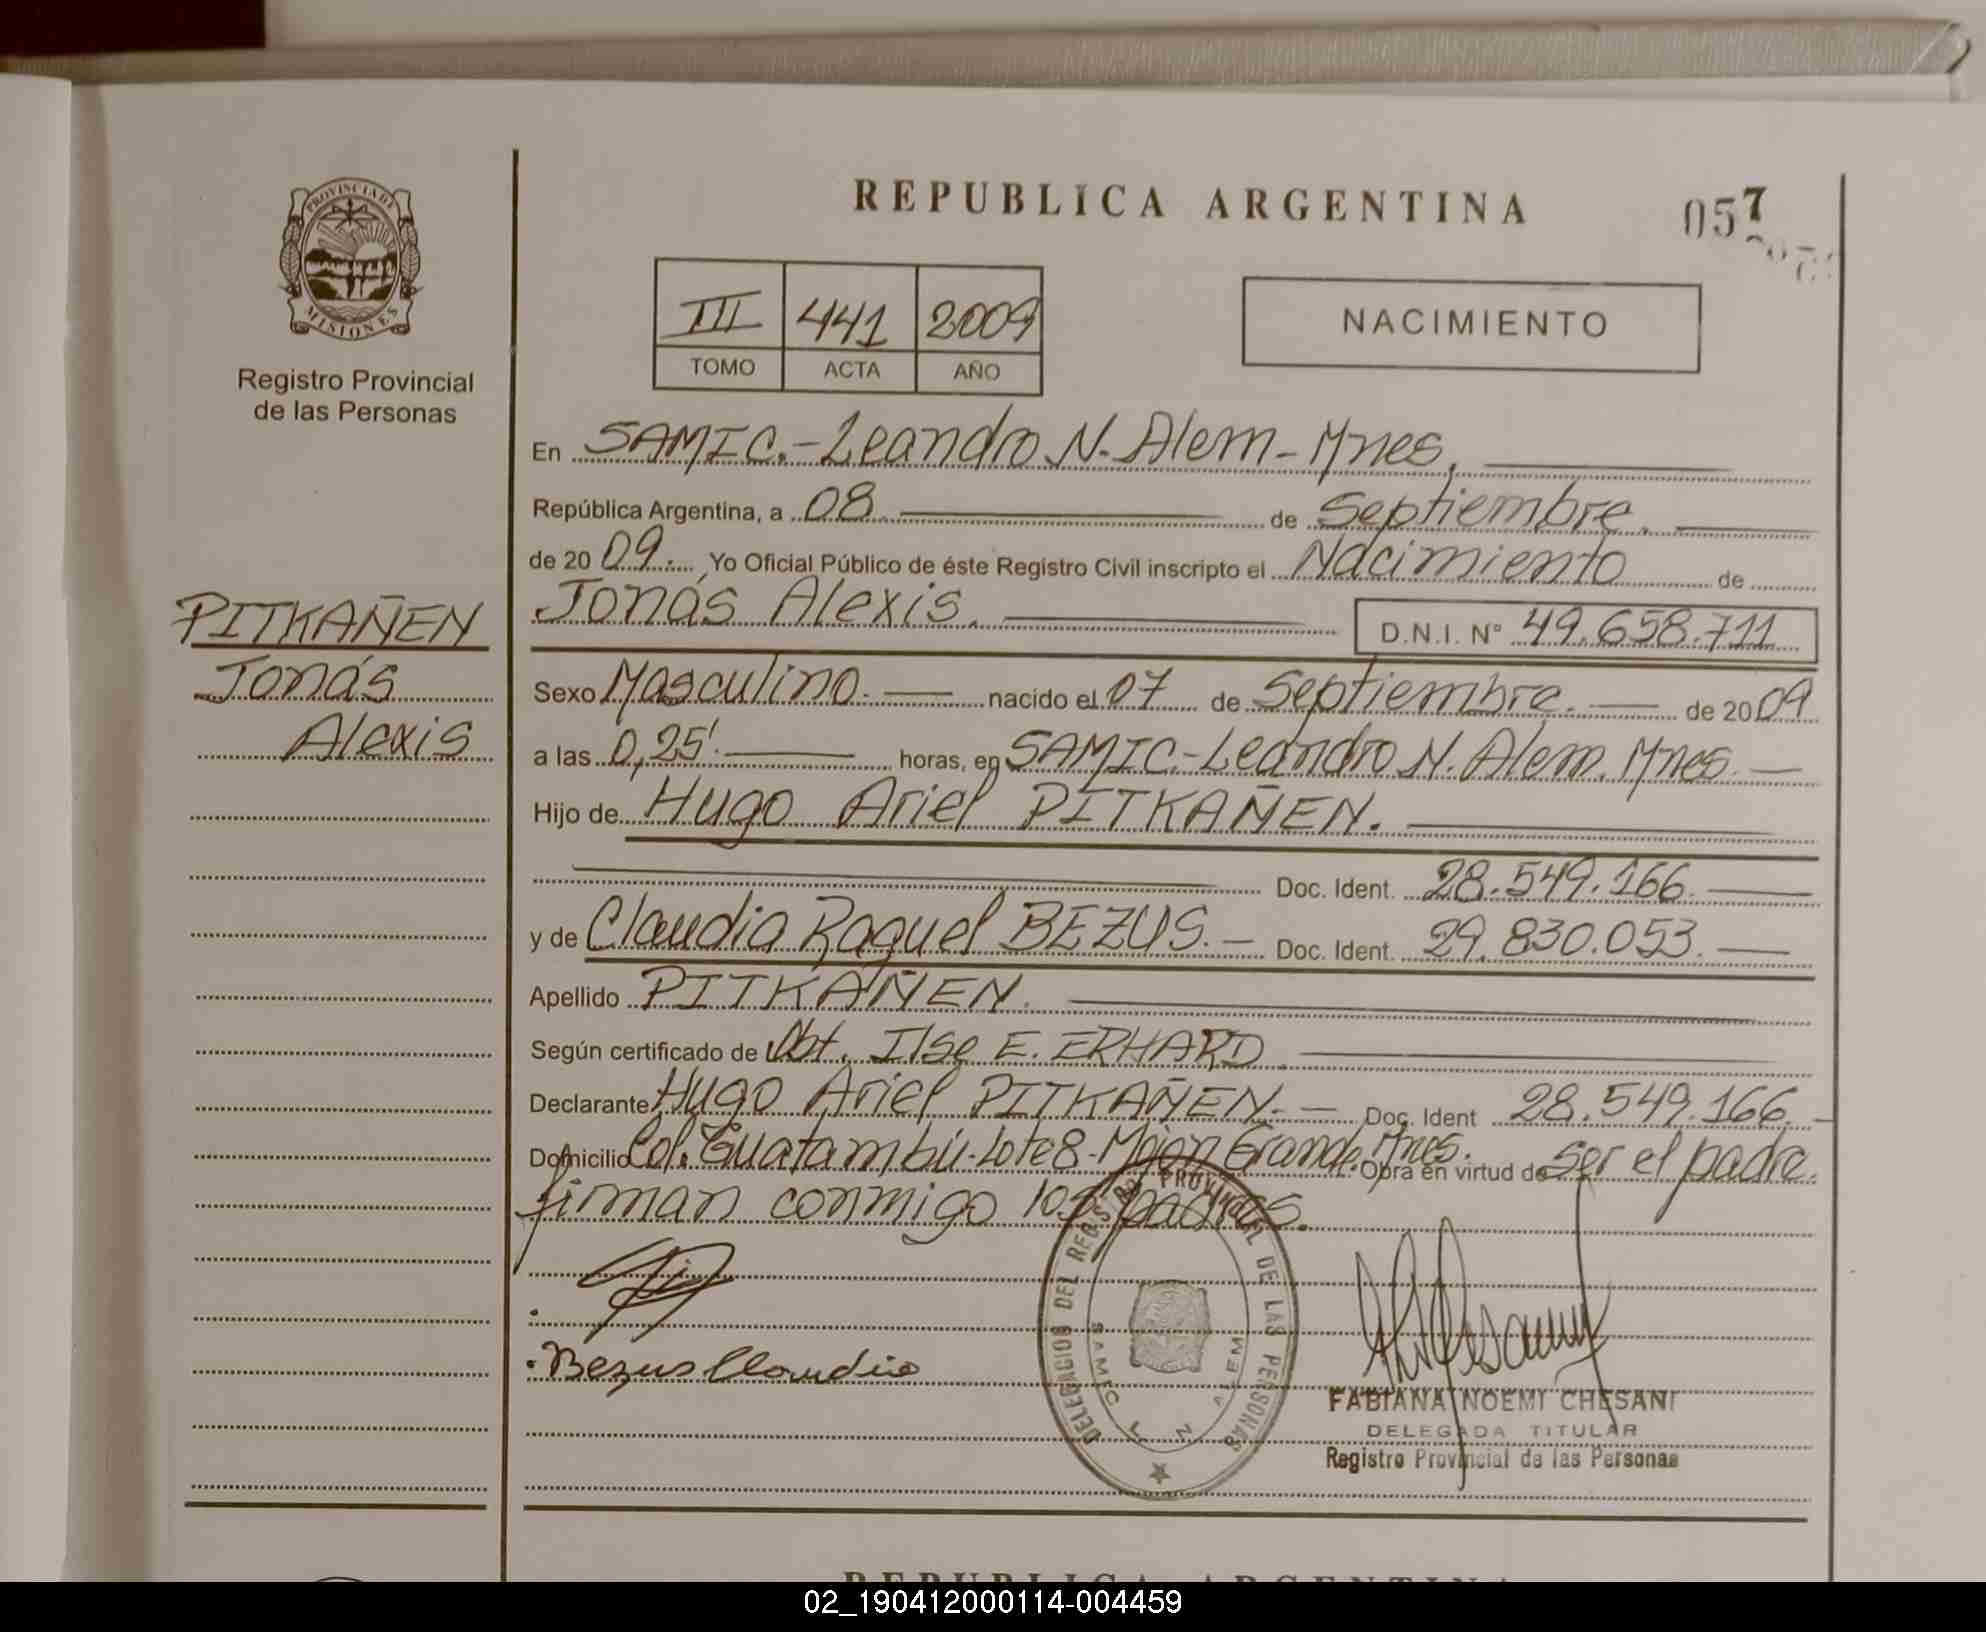 REPUBLICA ARGENTINA
057
PROVINCIA DE
MISIONES
Registro Provincial
de las Personas
III 441 2009
TOMO ACTA AÑO
NACIMIENTO
En SAMIC.-Leandro N. Alem-Mnes.
República Argentina, a 08 de Septiembre.
de 2009. Yo Oficial Público de éste Registro Civil inscripto el Nacimiento de
Jonás Alexis. D.N.I. N° 49.658.711
PITKAÑEN
Jonás
Alexis
Sexo Masculino. nacido el 07 de Septiembre. de 2009
a las 0,25'. horas, en SAMIC.-Leandro N. Alem. Mnes.
Hijo de Hugo Ariel PITKAÑEN.
Doc. Ident. 28.549.166.
y de Claudia Raquel BEZUS. Doc. Ident. 29.830.053.
Apellido PITKAÑEN.
Según certificado de Obt. Ilse E. ERHARD
Declarante Hugo Ariel PITKAÑEN. Doc. Ident 28.549.166.
Domicilio Col. Guatambú-Lote 8-Mojón Grande. Mnes. Obra en virtud de ser el padre.
firman conmigo los padres.
Bezus Claudia
DELEGACION DEL REGISTRO PROVINCIAL DE LAS PERSONAS
SAMIC L N ALEM
FABIANA NOEMI CHESANI
DELEGADA TITULAR
Registro Provincial de las Personas
REPUBLICA ARGENTINA
02_190412000114-004459